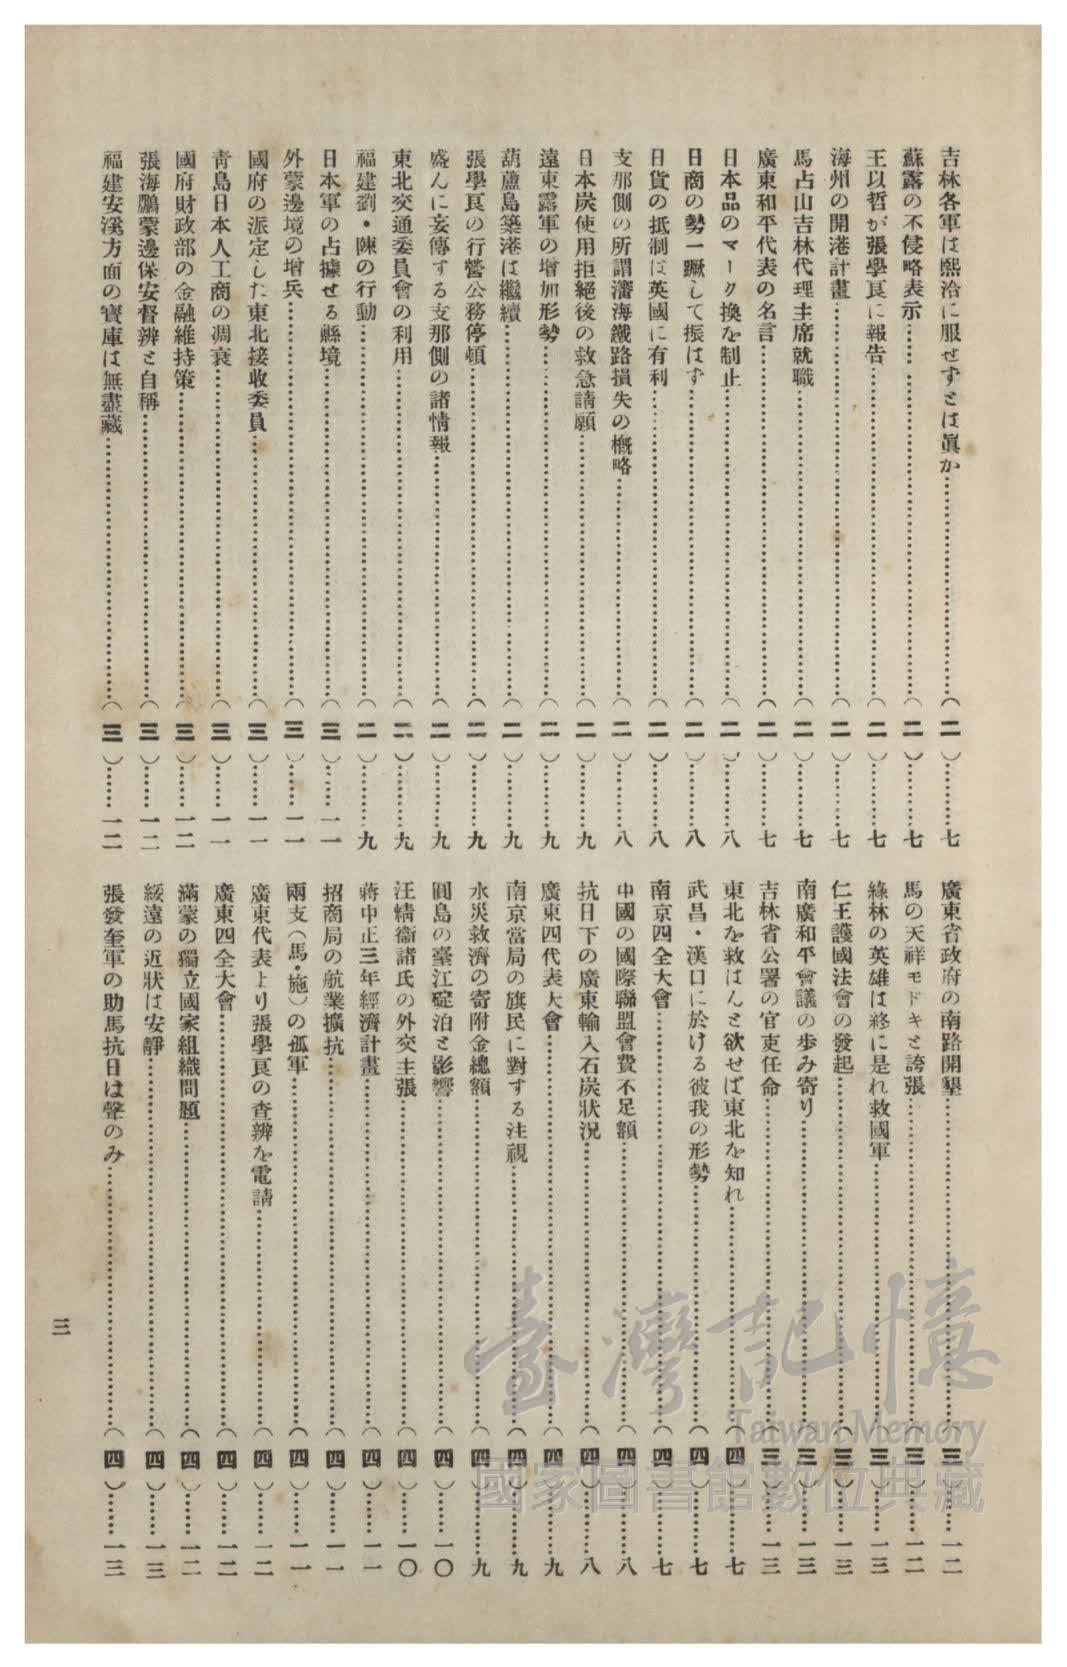 吉林各軍は熙洽に服せずとは眞か……(二)……七
蘇露の不侵略表示……(二)……七
王以哲が張學良に報告……(二)……七
海州の開港計畫……(二)……七
馬占山吉林代理主席就職……(二)……七
廣東和平代表の名言……(二)……七
日本品のマーク換を制止……(二)……八
日商の勢一蹶して振はず……(二)……八
日貨の抵制は英國に有利……(二)……八
支那側の所謂瀋海鐵路損失の槪略……(二)……八
日本炭使用拒絕後の救急請願……(二)……九
遠東露軍の增加形勢……(二)……九
葫蘆島築港は繼續……(二)……九
張學良の行營公務停頓……(二)……九
盛んに妄傳する支那側の諸情報……(二)……九
東北交通委員會の利用……(二)……九
福建劉・陳の行動……(二)……九
日本軍の占據せる縣境……(三)……一一
外蒙邊境の增兵……(三)……一一
國府の派定した東北接收委員……(三)……一一
靑島日本人工商の凋衰……(三)……一一
國府財政部の金融維持策……(三)……一二
張海鵬蒙邊保安督辨と自稱……(三)……一二
福建安溪方面の寶庫は無盡藏……(三)……一二
廣東省政府の南路開墾……(三)……一二
馬の天祥モドキと誇張……(三)……一二
綠林の英雄は終に是れ救國軍……(三)……一三
仁王護國法會の發起……(三)……一三
南廣和平會議の步み寄り……(三)……一三
吉林省公署の官吏任命……(三)……一三
東北を救はんと欲せば東北を知れ……(四)……七
武昌・漢口に於ける彼我の形勢……(四)……七
南京四全大會……(四)……七
中國の國際聯盟會費不足額……(四)……八
抗日下の廣東輸入石炭狀況……(四)……八
廣東四代表大會……(四)……九
南京當局の旗民に對する注視……(四)……九
水災救濟の寄附金總額……(四)……九
圓島の臺江碇泊と影響……(四)……一〇
汪精衞諸氏の外交主張……(四)……一〇
蔣中正三年經濟計畫……(四)……一一
招商局の航業擴抗……(四)……一一
兩支(馬・施)の孤軍……(四)……一一
廣東代表より張學良の查辨を電請……(四)……一二
廣東四全大會……(四)……一二
滿蒙の獨立國家組織問題……(四)……一二
綏遠の近狀は安靜……(四)……一三
張發奎軍の助馬抗日は聲のみ……(四)……一三
三
臺灣記憶
Taiwan Memory
國家圖書館數位典藏